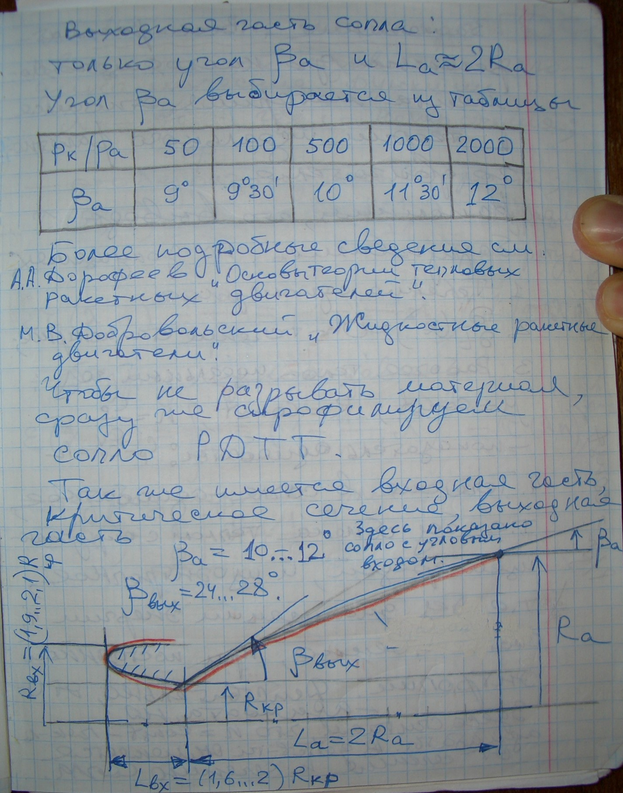 Выходная часть сопла:
только угол βa и La≈2Ra
Угол βa выбирается из таблицы
Pк/Pa 50 100 500 1000 2000
βa 9° 9°30' 10° 11°30' 12°
Более подробные сведения см.
А.А. Дорофеев „Основы теории тепловых
ракетных двигателей".
М.В. Добровольский „Жидкостные ракетные
двигатели".
Чтобы не разрывать материал,
сразу же спрофилируем
сопло РДТТ.
Так же имеется входная часть,
критическое сечение, выходная
часть
Здесь показано
сопло с угловым
входом.
βa = 10...12°
βвых = 24...28°.
βa
Rвх = (1,9...2,1) R
Ra
βвых
Rкр
La = 2Ra
Lвх = (1,6...2) Rкр